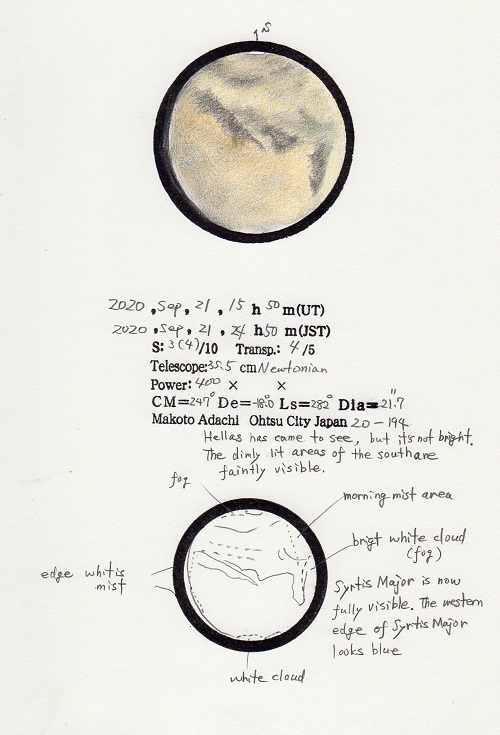 S
2020, Sep, 21, 15 h 50 m(UT)
2020, Sep, 21, 24 h 50 m(JST)
S: 3(4)/10 Transp.: 4/5
Telescope: 35.5 cm Newtonian
Power: 400 × ×
CM=247° De=-18.0° Ls=282° Dia=21.7"
Makoto Adachi Ohtsu City Japan 20-194
Hellas has came to see, but it's not bright.
The dimly lit areas of the south are
faintly visible.
fog
morning mist area
brigt white cloud
(fog)
edge whitis
mist
Syrtis Major is now
fully visible. The western
edge of Syrtis Major
looks blue
white cloud